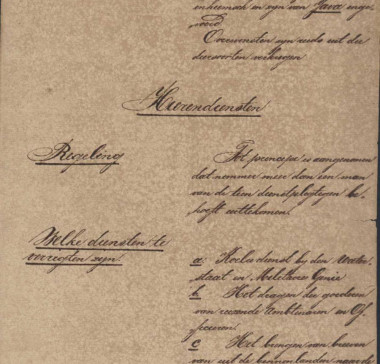 inheemsch en zyn van Java inge-
voerd
Ossenvensten zyn reeds uit de
diersoorten verkregen
Heerendiensten
Regeling
Als principe is aangenomen
dat nimmer meer dan een man
van de tien dienstpligtigen be-
hoeft uittekomen.
Welke diensten te
verrigten zyn.
a: Koeliedienst bij den Water-
staat en Militaire Genie
b Het dragen der goederen
van reizende Ambtenaren en Of-
ficieren.
c Het brengen van brieven
van uit de binnenlanden naar de